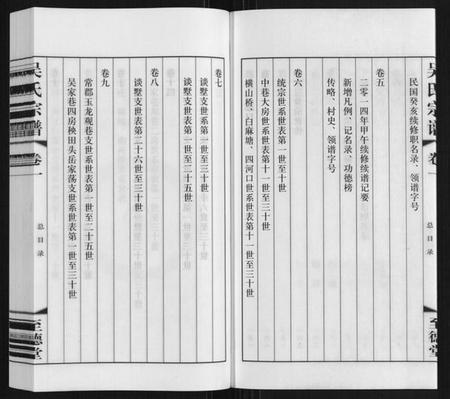 吴氏宗谱
卷一
总目录
至德堂
民国癸亥续修职名录、领谱字号
卷五
二零一四年甲午续修续谱记要
新增凡例、记名录、功德榜
传略、村史、领谱字号
卷六
统宗世系世表第一世至十世
中巷大房世系世表第十一世至三十世
横山桥、白麻塘、四河口世系世表第十一世至三十世
卷七
谈墅支世系世表第一世至
谈墅支世表第一世至二十五世
卷八
谈墅支世表第二十六世至三十世
卷九
常郡玉龙岘巷支世系世表第一世至二十五世
吴家巷四房秧田头岳家荡支世系世表第一世至三十世
吴氏宗谱
卷一
总目录
至德堂